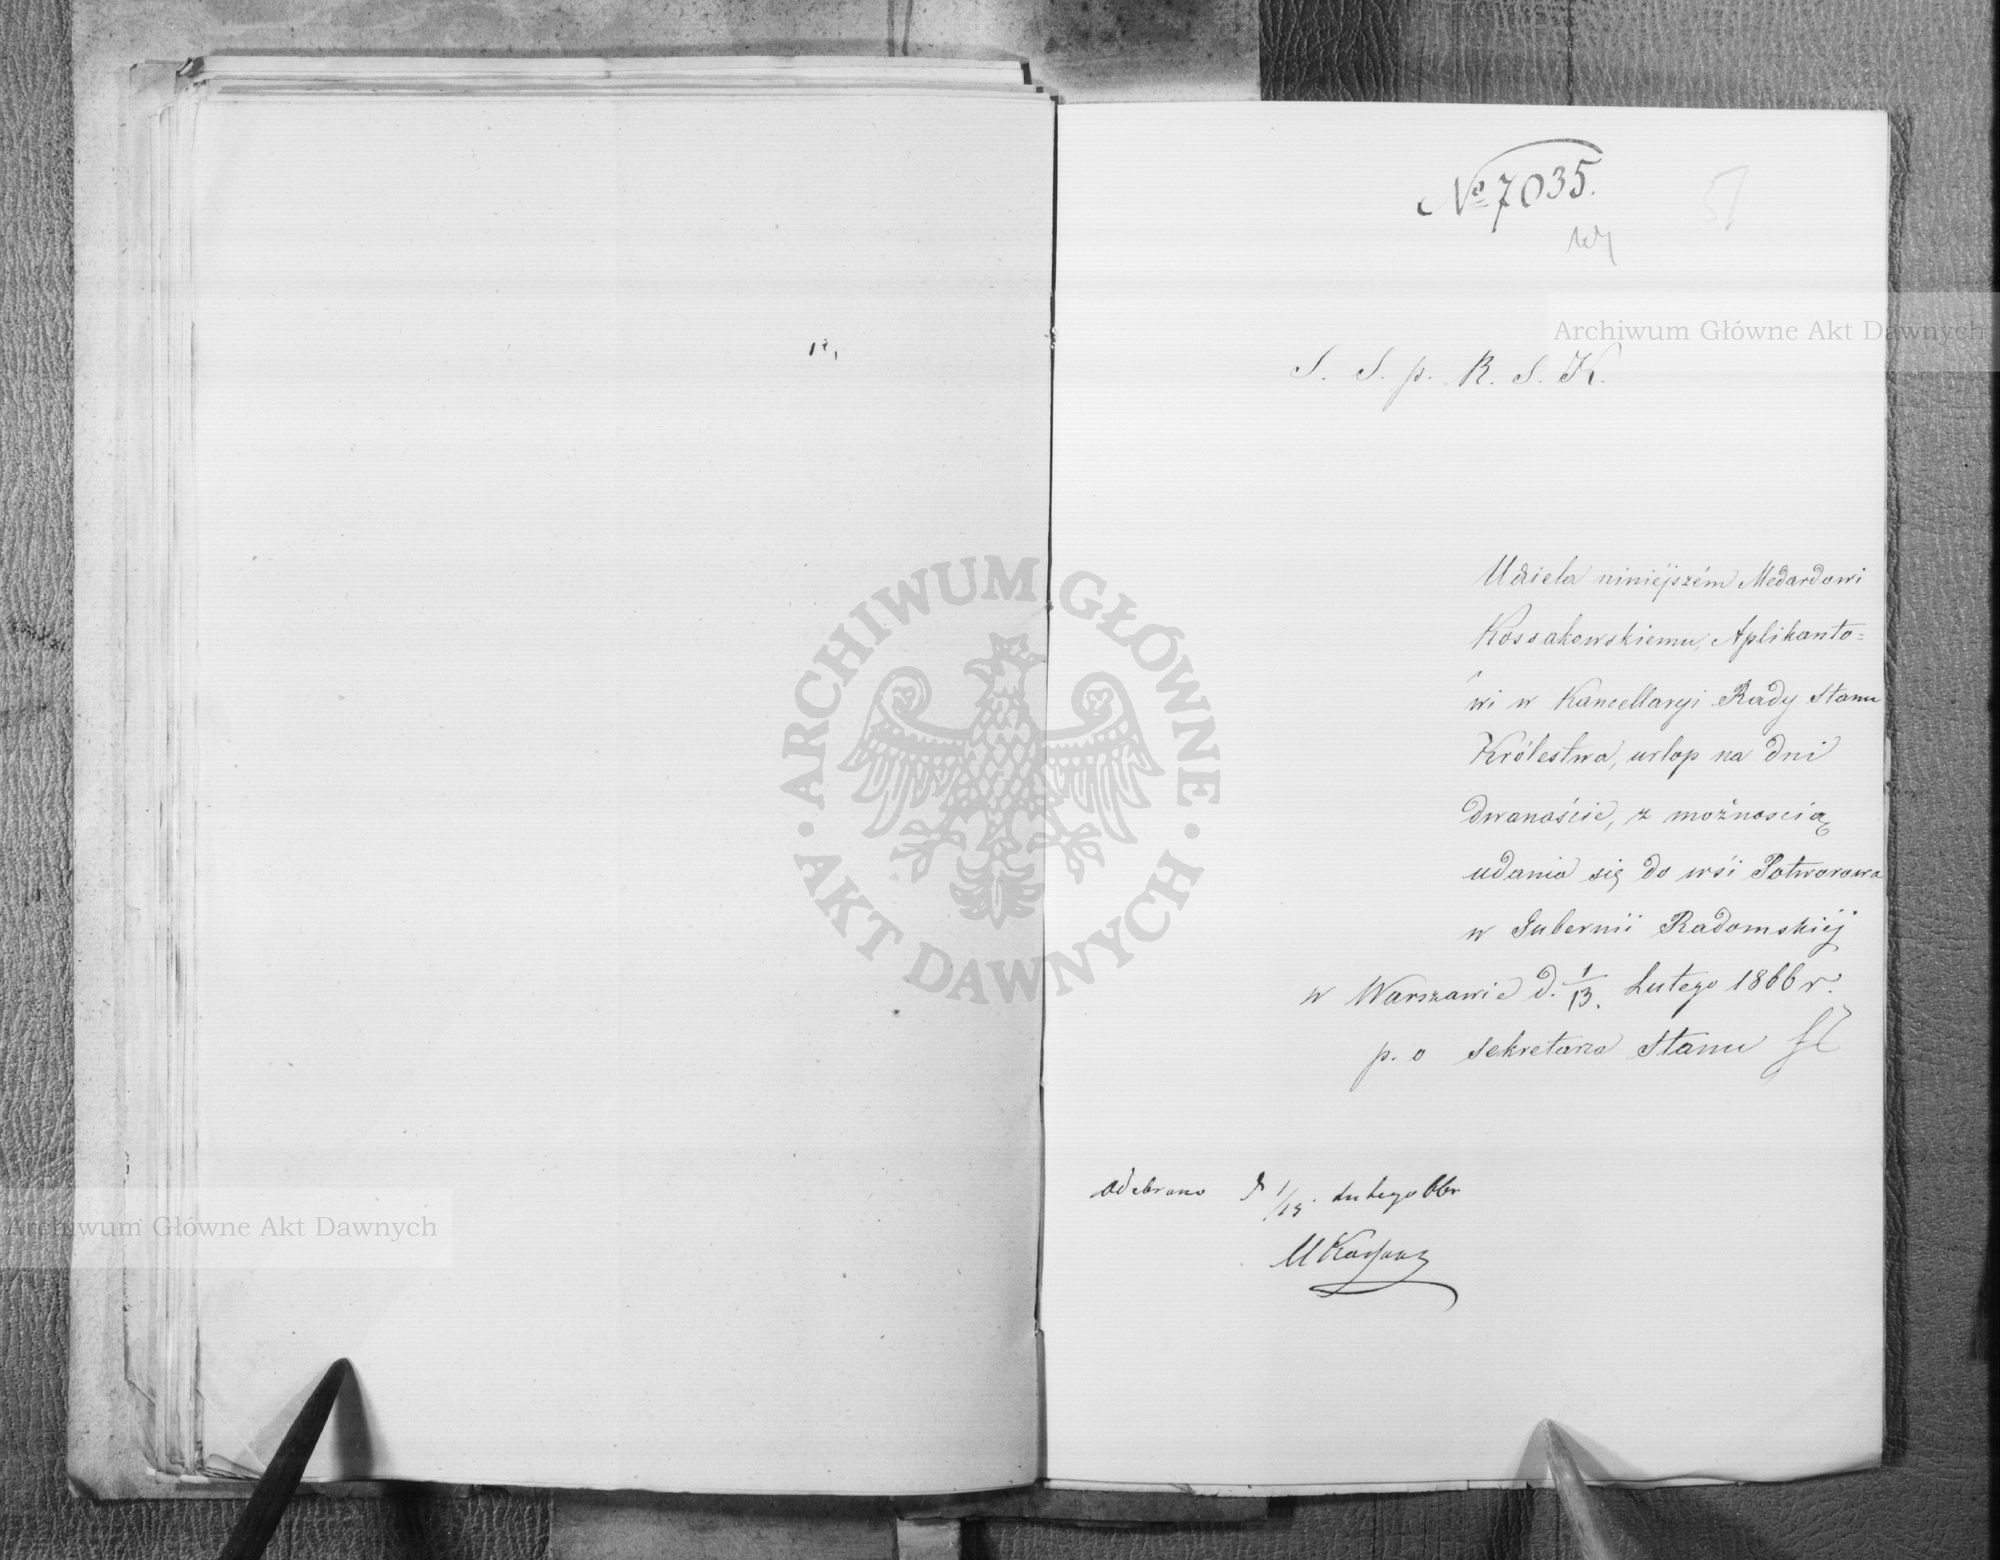 № 7035.
51
Archiwum Główne Akt Dawnych
S. S. p. R. S. K.
Udziela niniejszém Medardowi
Kossakowskiemu, Aplikanto=
wi w Kancellaryi Rady Stanu
Królestwa, urlop na dni
dwanaście, z możnością
udania się do wsi Potworowa
w Gubernii Radomskiéj
w Warszawie d. 1/13. Lutego 1866 r.
p. o Sekretarza Stanu
Odebrano d 1/13. Lutego 66r
Archiwum Główne Akt Dawnych
ARCHIWUM GŁÓWNE · AKT DAWNYCH ·